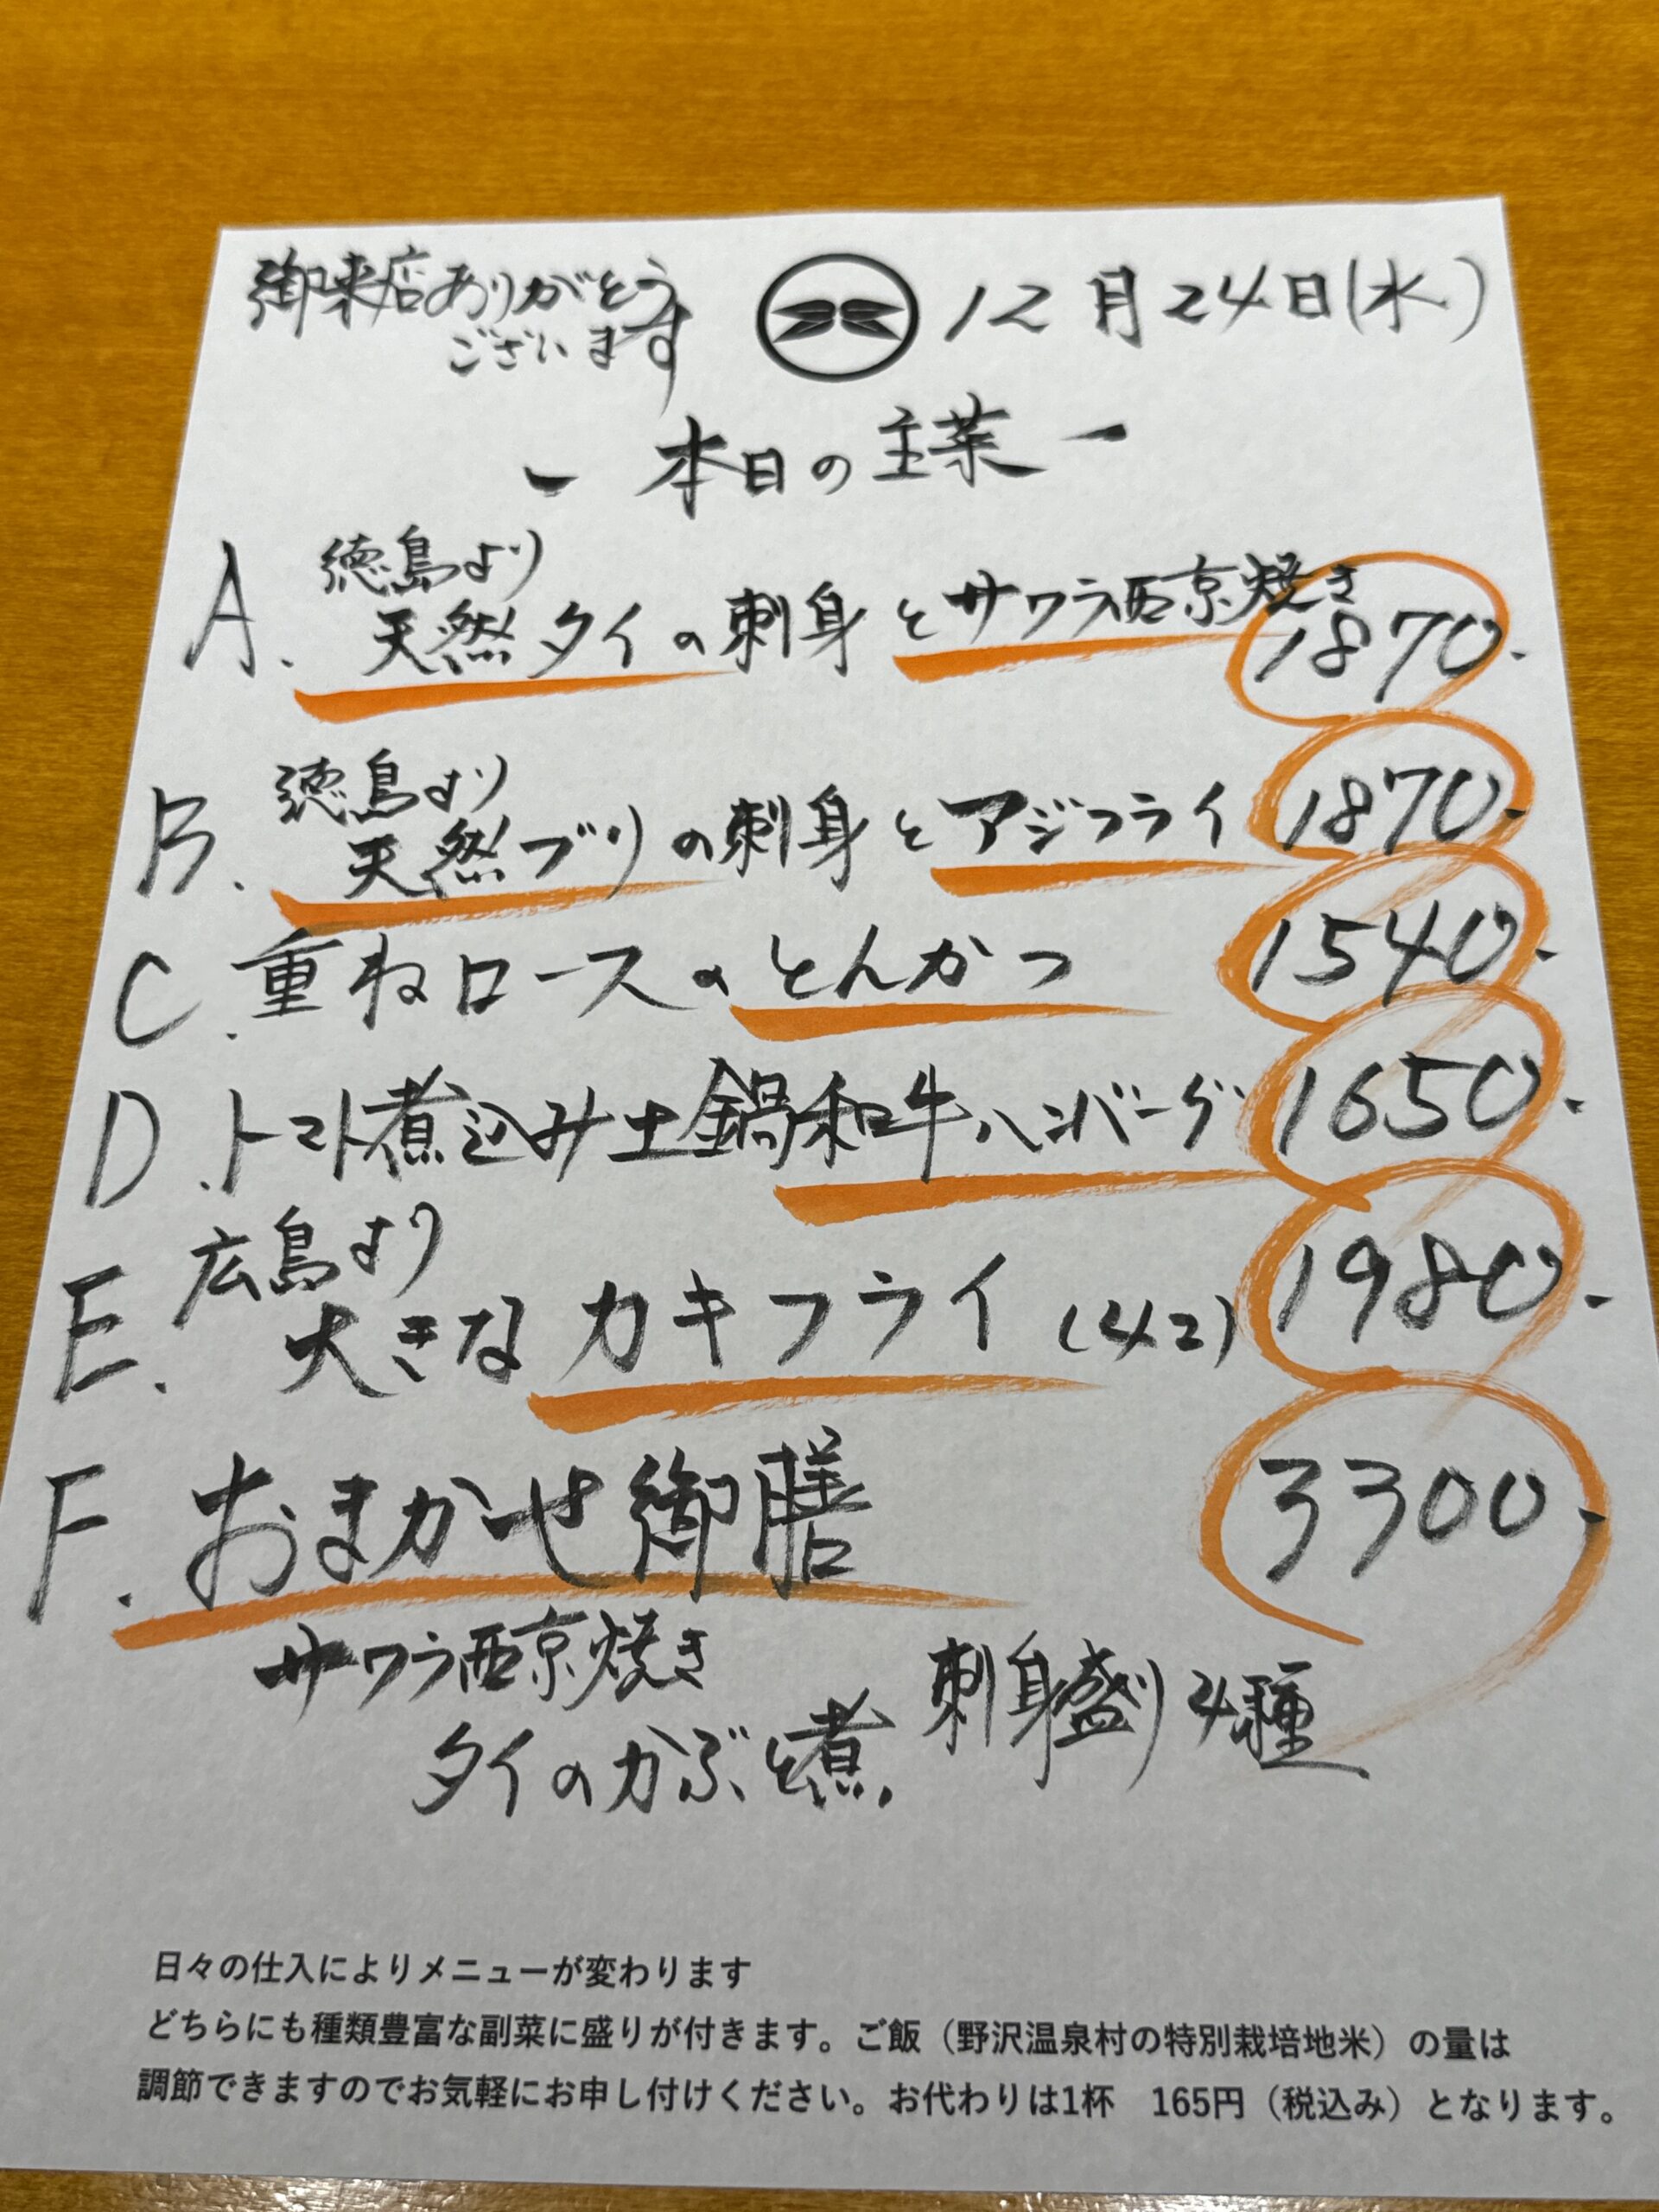 御来店ありがとう
ございます
12月24日(水)
- 本日の主菜 -
A. 徳島より
天然タイの刺身とサワラ西京焼き 1870.
B. 徳島より
天然ブリの刺身とアジフライ 1870.
C. 重ねロースのとんかつ 1540.
D. トマト煮込み土鍋和牛ハンバーグ 1650.
E. 広島より
大きなカキフライ(4コ) 1980.
F. おまかせ御膳 3300.
サワラ西京焼き
刺身盛り4種
タイのかぶと煮.
日々の仕入によりメニューが変わります
どちらにも種類豊富な副菜に盛りが付きます。ご飯（野沢温泉村の特別栽培地米）の量は
調節できますのでお気軽にお申し付けください。お代わりは1杯　165円（税込み）となります。